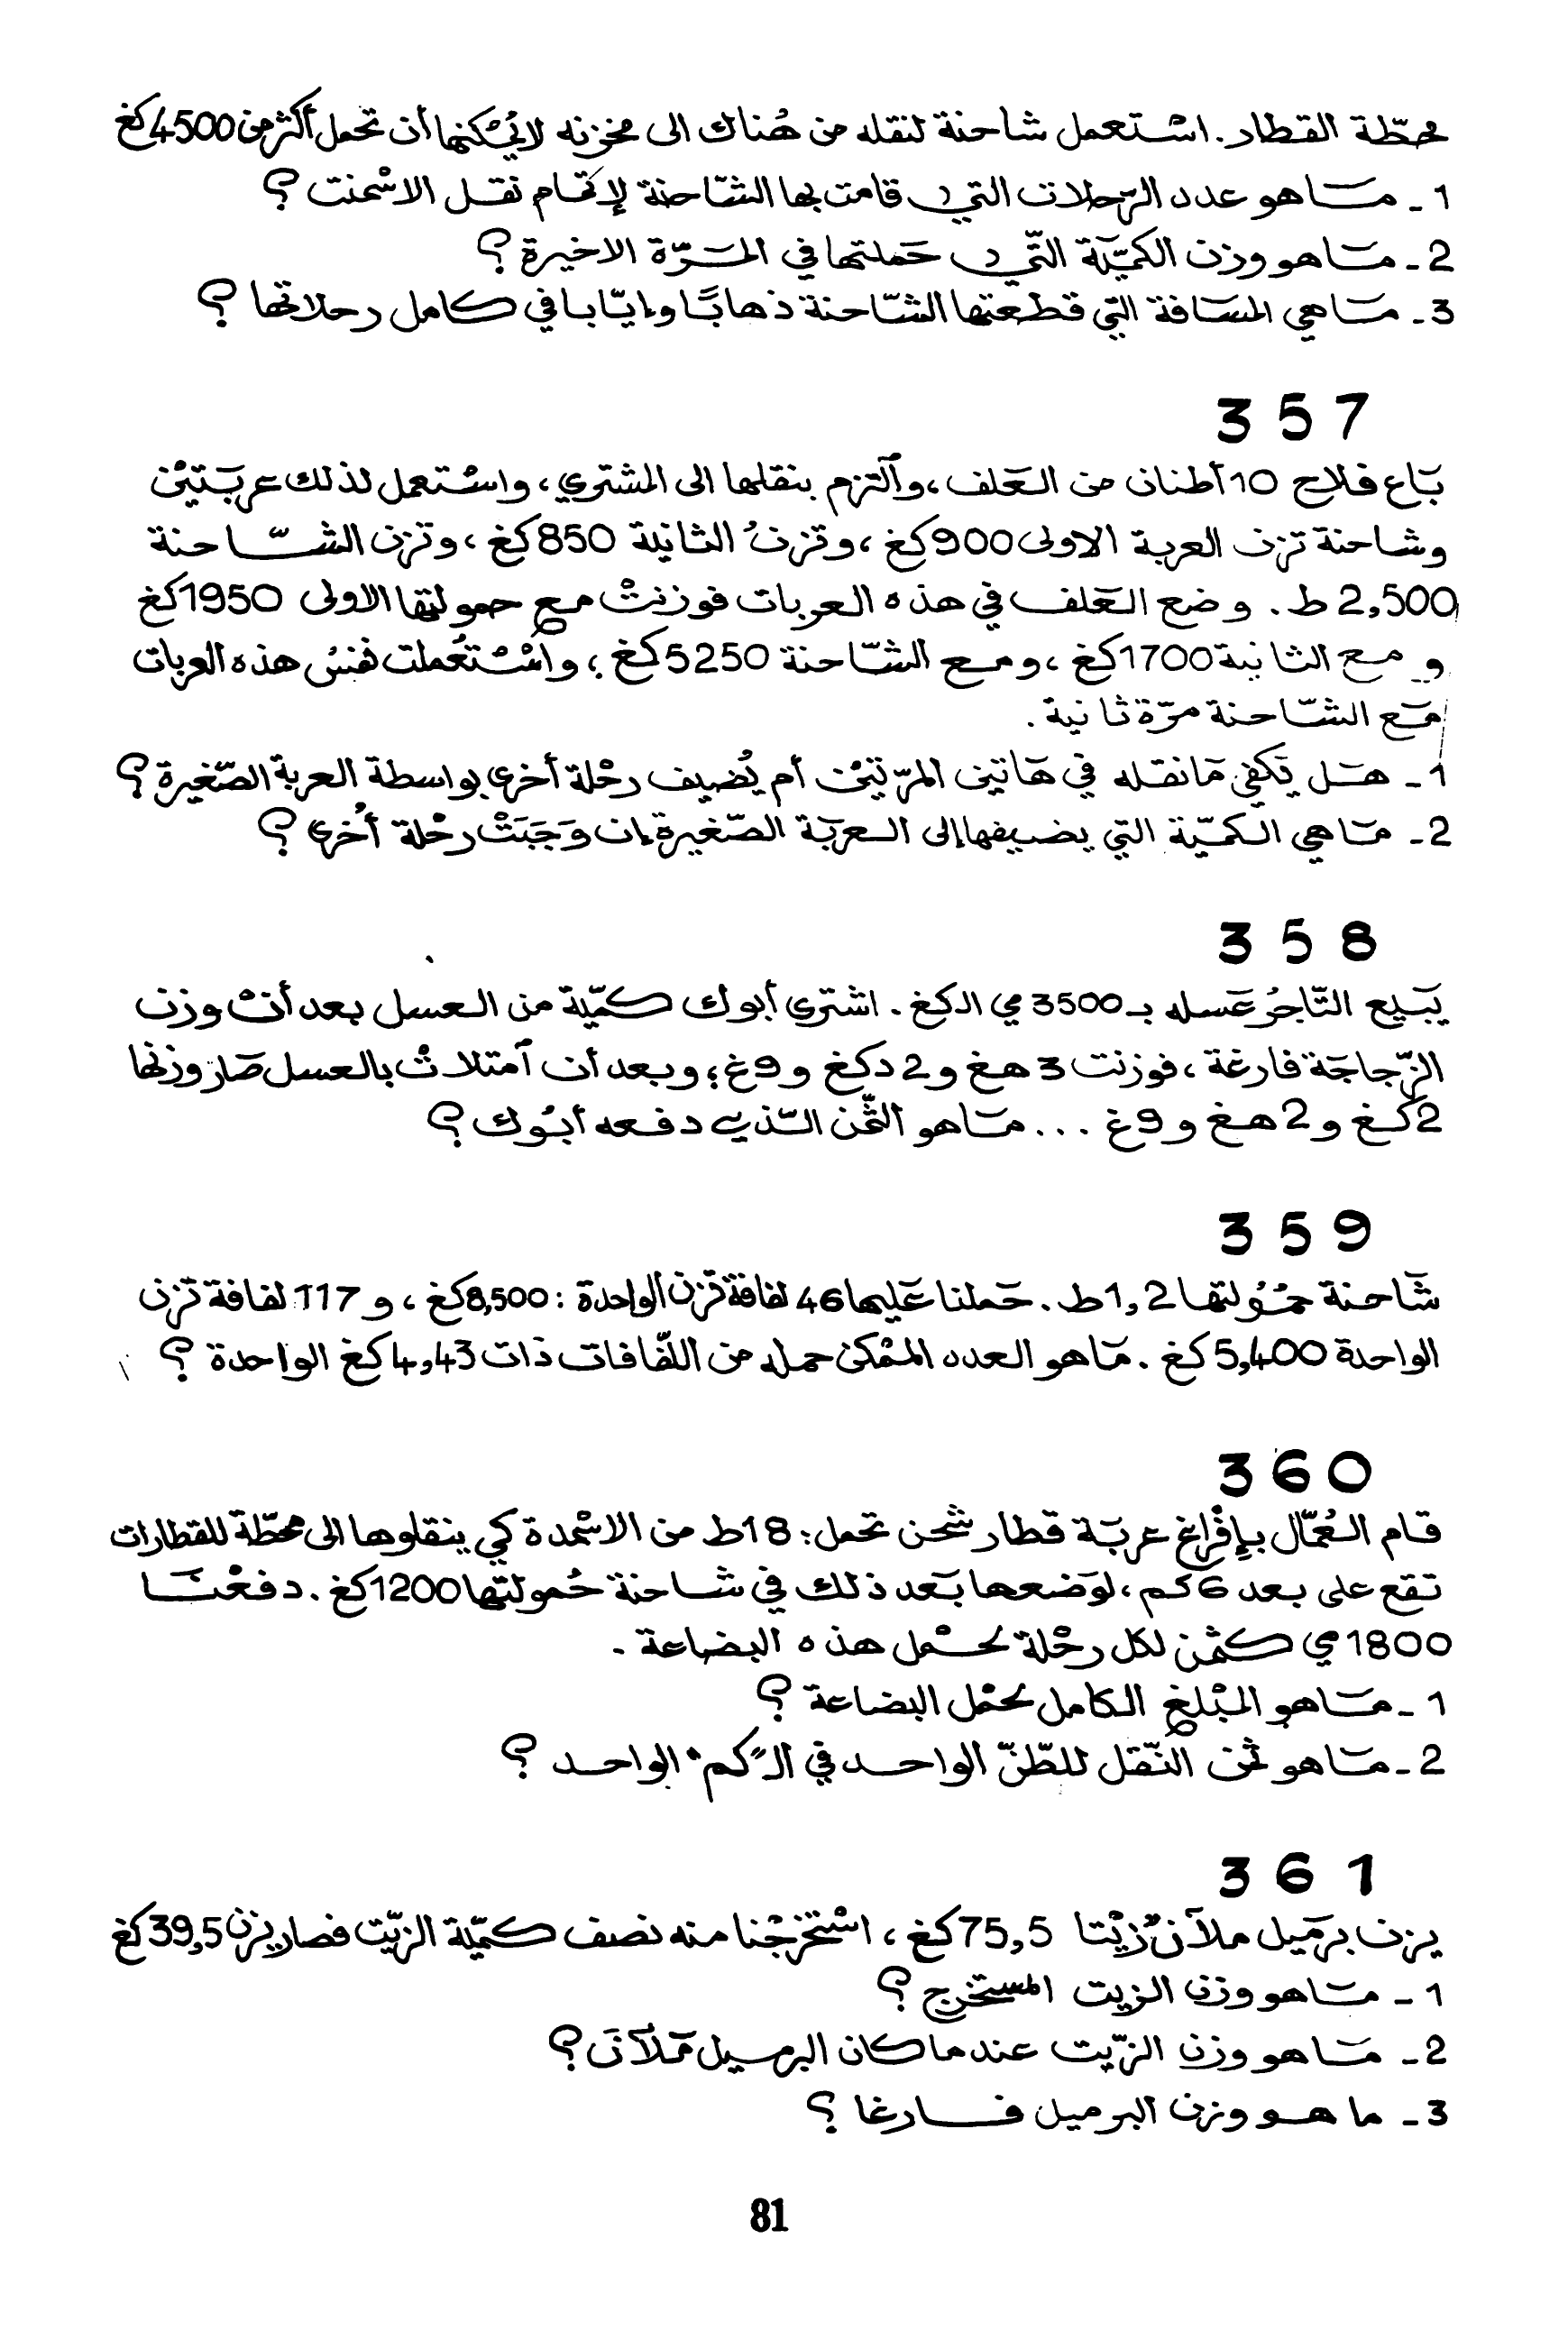 محطّة القطار. اسْتعمل شاحنة لنقله من هُناك الى مخزنه لا يُمْكنها أن تحمل أكثر من 4500كغ
1 ـ مَا هو عدد الرّحلات التي قامت بها الشّاحنة لإتمام نقل الاسْمنت ؟
2 ـ مَا هو وزن الكميّة التّي حَملتها في المَرّة الاخيرة ؟
3 ـ مَا هي المسَافة التي قطعتها الشّاحنة ذهابًا وإيّابا في كامل رحلاتها ؟
357
بَاع فلاح 10 أطنان من العَلف ، وآلتزم بنقلها الى المشتري ، واسْتعمل لذلك عربَتيْن
وشاحنة تزن العربة الاولى 900كغ ، وتزنُ الثانية 850كغ ، وتزن الشّاحنة
2,500 ط . وضع العَلف في هذه العربات فوزنتْ مع حمولتها الاولى 1950كغ
و مع الثانية 1700كغ ، ومع الشّاحنة 5250كغ ؛ واسْتُعْملت نفسُ هذه العربات
مَع الشّاحنة مرّة ثانية .
1 ـ هَل يَكفي مَا نقله في هَاتين المرّتيْن أم يُضيف رحْلة أخرى بواسطة العربة الصّغيرة ؟
2 ـ مَا هي الكميّة التي يضيفها إلى العربَة الصّغيرة إن وَجَبَتْ رحْلة أخرى ؟
358
يَبيع التّاجرُ عَسله بـ 3500 مي الكغ . اشترى أبوك كميّة من العسل بعد أنْ وزن
الزّجاجَة فارغة ، فوزنت 3 هغ و 2 دكغ و 9غ ؛ وبعد أن آمتلاتْ بالعسل صَار وزنها
2كغ و 2 هغ و 9غ ... مَا هو الثّمن الّذي دفعه أبُوك ؟
359
شَاحنة حمُولتها 1,2ط . حَملنا عَليها 46 لفافة تزن الواحدة : 8,500كغ ، و 117 لفافة تزن
الواحدة 5,400كغ . مَا هو العدد المُمْكن حمله من اللّفافات ذات 4,43كغ الواحدة ؟
360
قام العُمّال بإفْراغ عربَة قطار شحْن تحمل : 18ط من الاسْمدة كي ينقلوها الى محطّة للقطارات
تقع على بعد 6 كم ، لوَضعها بَعد ذلك في شاحنة حُمولتها 1200كغ . دفعْنَا
1800 مي كثمْن لكل رحْلة لحَمْل هذه البضاعة .
1 ـ مَا هو المبْلغ الكامل لحمْل البضاعة ؟
2 ـ مَا هو ثمن النّقل للطّنّ الواحد في الـ"كم" الواحد ؟
361
يزن برميل ملآن زيْتا 75,5كغ ، اسْتخرجْنا منه نصف كميّة الزيّت فصار يزن 39,5كغ
1 ـ مَا هو وزن الزيت المستخرج ؟
2 ـ مَا هو وزن الزيّت عندما كان البرميل مَلآنَ ؟
3 ـ ما هو وزن البرميل فارغا ؟
81